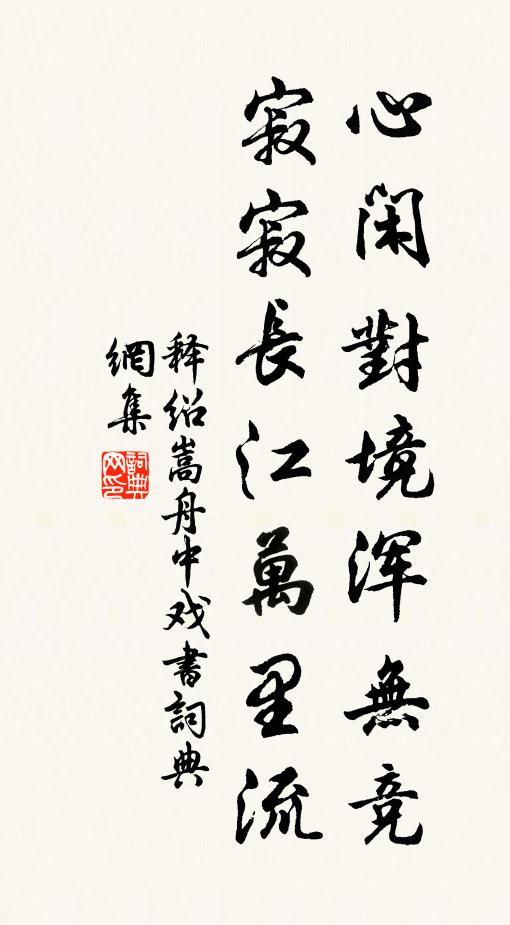 心閑對境渾無竞
寂寂長江萬里流
释绍嵩舟中戏書詞典
網集
詞典网印